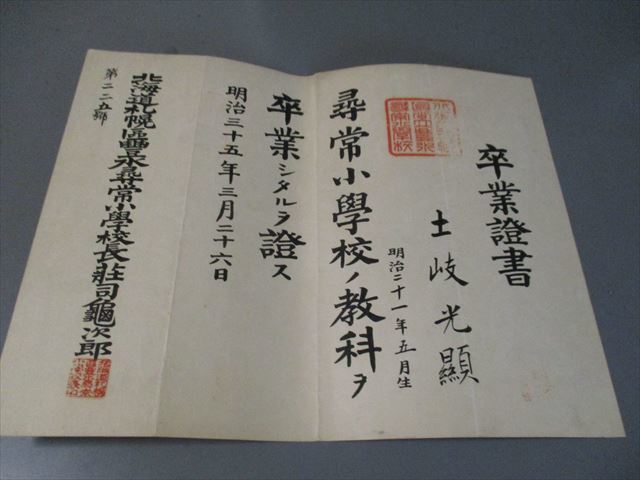 卒業證書
土岐光顯
明治二十一年五月生
尋常小學校ノ教科ヲ
卒業シタルヲ證ス
明治三十五年三月二十六日
北海道札幌區豐水尋常小學校長莊司龜次郎
第二二五號